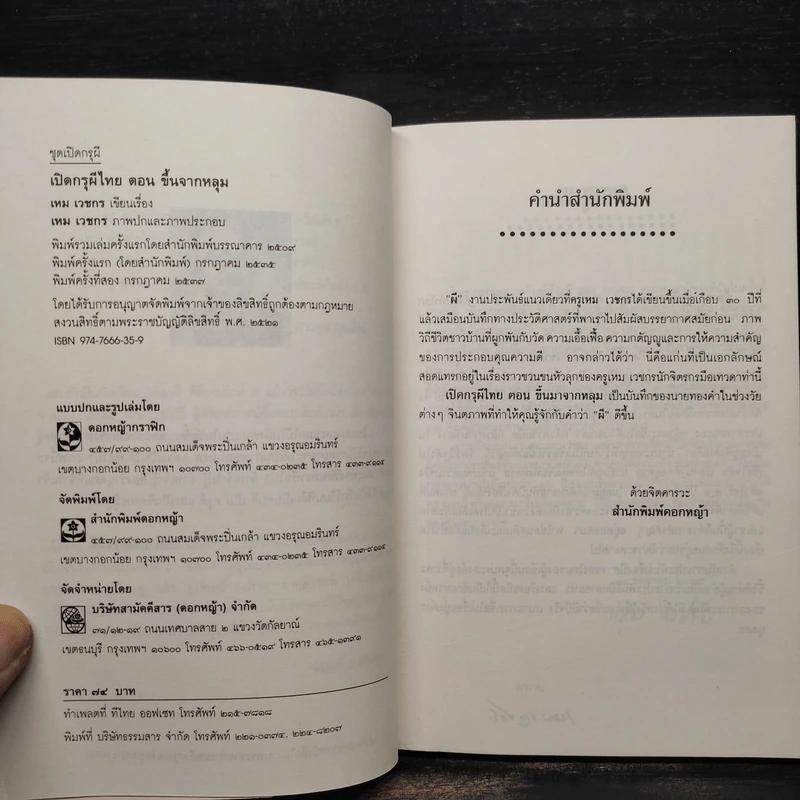 ชุดเปิดกรุผี
เปิดกรุผีไทย ตอน ขึ้นจากหลุม
เหม เวชกร เขียนเรื่อง
เหม เวชกร ภาพปกและภาพประกอบ
พิมพ์รวมเล่มครั้งแรกโดยสำนักพิมพ์บรรณาคาร ๒๕๐๙
พิมพ์ครั้งแรก (โดยสำนักพิมพ์) กรกฎาคม ๒๕๓๕
พิมพ์ครั้งที่สอง กรกฎาคม ๒๕๓๗
โดยได้รับการอนุญาตจัดพิมพ์จากเจ้าของลิขสิทธิ์ถูกต้องตามกฎหมาย
สงวนสิทธิ์ตามพระราชบัญญัติลิขสิทธิ์ พ.ศ. ๒๕๒๑
ISBN 974-7666-35-9
แบบปกและรูปเล่มโดย
ดอกหญ้ากราฟิก
๔๕๗/๙๙-๑๐๐ ถนนสมเด็จพระปิ่นเกล้า แขวงอรุณอมรินทร์
เขตบางกอกน้อย กรุงเทพฯ ๑๐๗๐๐ โทรศัพท์ ๔๓๔-๐๒๓๕ โทรสาร ๔๓๓-๙๑๑๔
จัดพิมพ์โดย
สำนักพิมพ์ดอกหญ้า
๔๕๗/๙๙-๑๐๐ ถนนสมเด็จพระปิ่นเกล้า แขวงอรุณอมรินทร์
เขตบางกอกน้อย กรุงเทพฯ ๑๐๗๐๐ โทรศัพท์ ๔๓๔-๐๒๓๕ โทรสาร ๔๓๓-๙๑๑๔
จัดจำหน่ายโดย
บริษัทสามัคคีสาร (ดอกหญ้า) จำกัด
๓๑/๑๒-๑๙ ถนนเทศบาลสาย ๒ แขวงวัดกัลยาณ์
เขตธนบุรี กรุงเทพฯ ๑๐๖๐๐ โทรศัพท์ ๔๖๖-๐๕๑๙ โทรสาร ๔๖๕-๑๓๙๑
ราคา ๗๔ บาท
ทำเพลตที่ ทีไทย ออฟเซท โทรศัพท์ ๒๑๕-๗๘๑๘
พิมพ์ที่ บริษัทธรรมสาร จำกัด โทรศัพท์ ๒๒๑-๐๓๗๔, ๒๒๔-๘๒๐๗
คำนำสำนักพิมพ์
"ผี" งานประพันธ์แนวเดียวที่ครูเหม เวชกรได้เขียนขึ้นเมื่อเกือบ ๓๐ ปีที่
แล้วเสมือนบันทึกทางประวัติศาสตร์ที่พาเราไปสัมผัสบรรยากาศสมัยก่อน ภาพ
วิถีชีวิตชาวบ้านที่ผูกพันกับวัด ความเอื้อเฟื้อ ความกตัญญูและการให้ความสำคัญ
ของการประกอบคุณความดี อาจกล่าวได้ว่า นี่คือแก่นที่เป็นเอกลักษณ์
สอดแทรกอยู่ในเรื่องราวชวนขนหัวลุกของครูเหม เวชกรนักจิตรกรมือเทวดาท่านี้
เปิดกรุผีไทย ตอน ขึ้นมาจากหลุม เป็นบันทึกของนายทองคำในช่วงวัย
ต่างๆ จินตภาพที่ทำให้คุณรู้จักกับคำว่า "ผี" ดีขึ้น
ด้วยจิตคารวะ
สำนักพิมพ์ดอกหญ้า